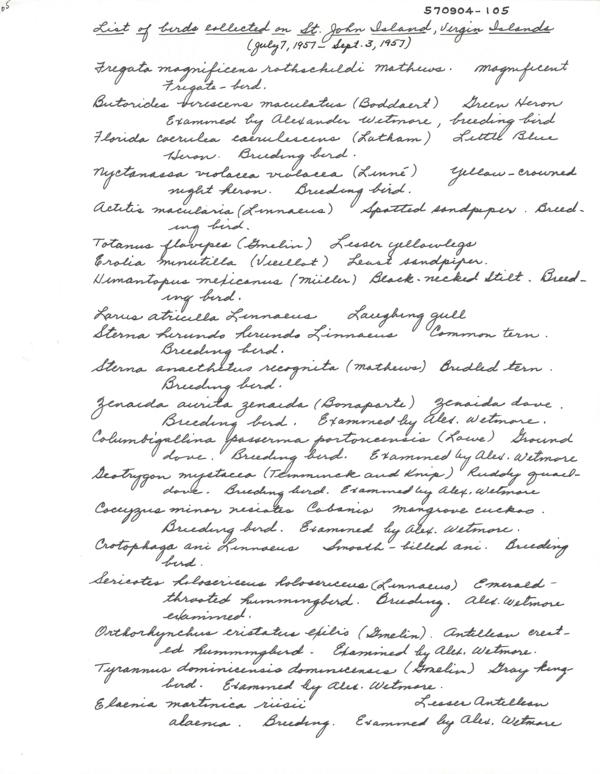 05
570904-105
List of birds collected on St. John Island, Virgin Islands
(July 7, 1957 - Sept. 3, 1957)
Fregata magnificens rothschildi Mathews. Magnificent
Frigate-bird.
Butorides virescens maculatus (Boddaert) Green Heron
Examined by Alexander Wetmore, breeding bird
Florida coerulea caerulescens (Latham) Little Blue
Heron. Breeding bird.
Nyctanassa violacea violacea (Linné) Yellow-crowned
night heron. Breeding bird.
Actitis macularia (Linnaeus) Spotted sandpiper. Breed-
ing bird.
Totanus flavipes (Gmelin) Lesser yellowlegs
Erolia minutilla (Vieillot) Least sandpiper.
Himantopus mexicanus (Müller) Black-necked Stilt. Breed-
ing bird.
Larus atricilla Linnaeus Laughing gull
Sterna hirundo hirundo Linnaeus Common tern.
Breeding bird.
Sterna anaethetus recognita (Mathews) Bridled tern.
Breeding bird.
Zenaida aurita zenaida (Bonaparte) Zenaida dove.
Breeding bird. Examined by Alex. Wetmore.
Columbigallina passerina portoricensis (Lowe) Ground
dove. Breeding bird. Examined by Alex. Wetmore
Geotrygon mystacea (Temminck and Knip) Ruddy quail-
dove. Breeding bird. Examined by Alex. Wetmore
Coccyzus minor nesiotes Cabanis Mangrove cuckoo.
Breeding bird. Examined by Alex. Wetmore.
Crotophaga ani Linnaeus Smooth-billed ani. Breeding
bird.
Sericotes holosericeus holosericeus (Linnaeus) Emerald-
throated hummingbird. Breeding. Alex. Wetmore
examined.
Orthorhynchus cristatus exilis (Gmelin). Antillean crest-
ed hummingbird. Examined by Alex. Wetmore.
Tyrannus dominicensis dominicensis (Gmelin) Gray king
bird. Examined by Alex. Wetmore.
Elaenia martinica riisii Lesser Antillean
alaenia. Breeding. Examined by Alex. Wetmore